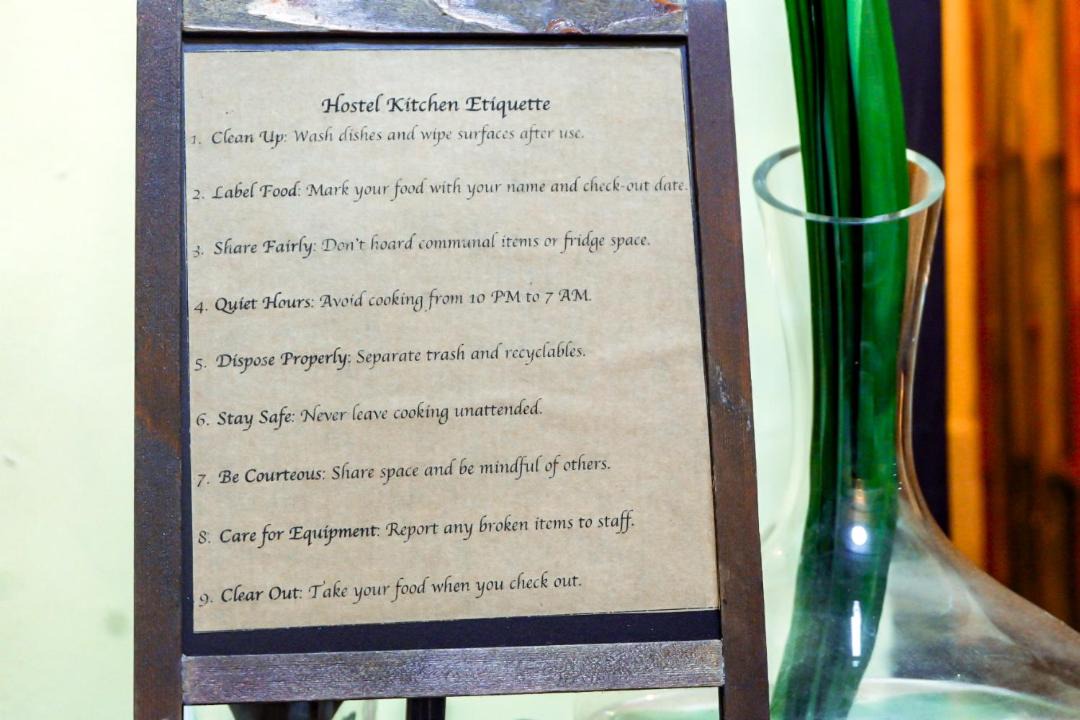 Hostel Kitchen Etiquette
1. Clean Up: Wash dishes and wipe surfaces after use.
2. Label Food: Mark your food with your name and check-out date.
3. Share Fairly: Don't hoard communal items or fridge space.
4. Quiet Hours: Avoid cooking from 10 PM to 7 AM.
5. Dispose Properly: Separate trash and recyclables.
6. Stay Safe: Never leave cooking unattended.
7. Be Courteous: Share space and be mindful of others.
8. Care for Equipment: Report any broken items to staff.
9. Clear Out: Take your food when you check out.